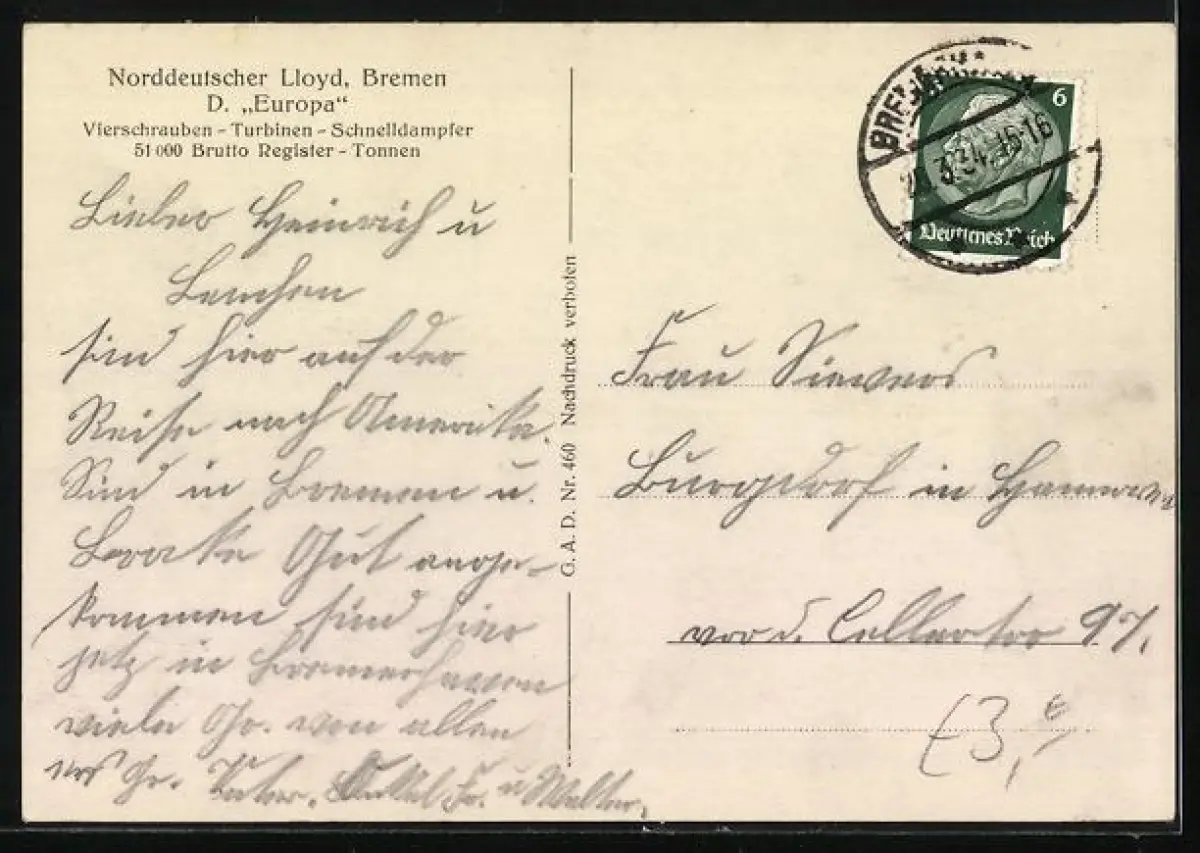 Norddeutscher Lloyd, Bremen
D. „Europa“
Vierschrauben - Turbinen - Schnelldampfer
51 000 Brutto Register - Tonnen
Lieber Heinrich u
Lenchen
sind hier auf der
Reise nach Amerika.
Sind in Bremen u.
Gut ange-
kommen sind hier
jetz in Bremerhaven
viele Gr. von allen
Gr. Vater. Onkel Fr. u Walter.
G. A. D. Nr. 460 Nachdruck verboten
6
34. 15-16
Deutsches Reich
Frau Sievers
Burgdorf in Hannover
vor d. Cellertor 97.